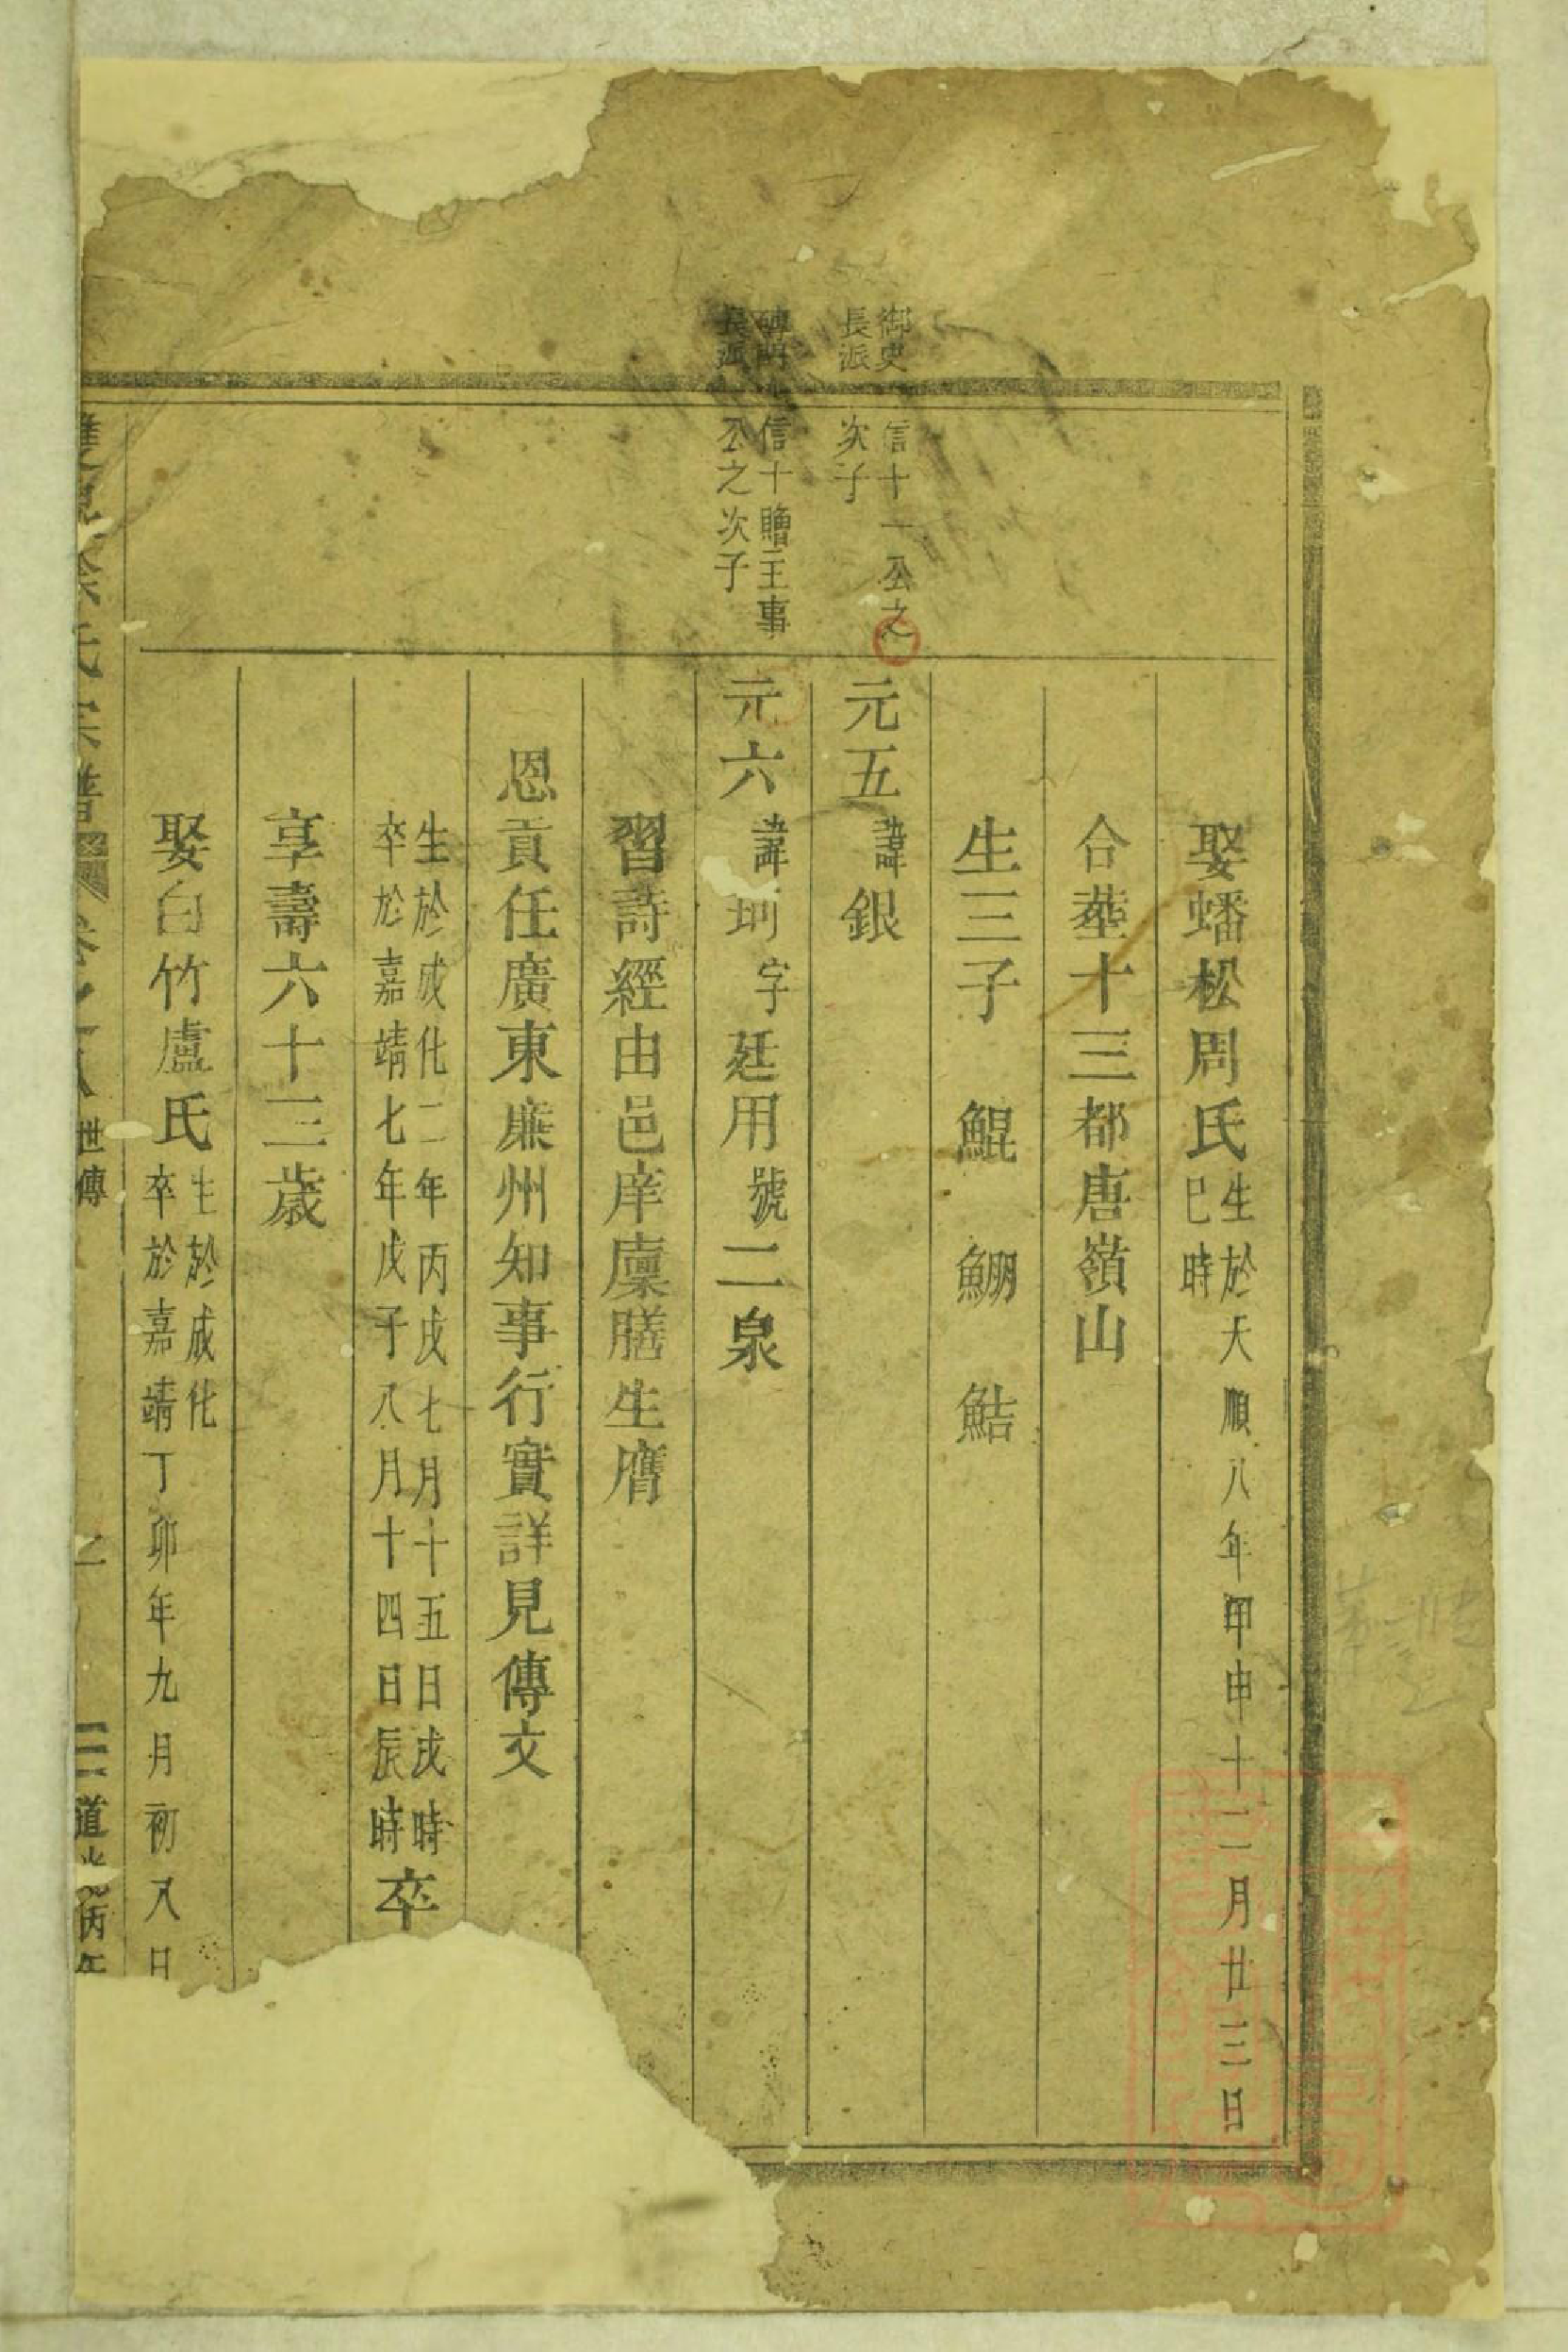 娶蟠松周氏生於天順八年甲申十二月廿三日
巳時
合塟十三都唐嶺山
生三子 鯤 鰤 鮚
御史
長派
信十一公之
次子
元五諱銀
長派
信十贈主事
公之次子
元六諱珂字廷用號二泉
習詩經由邑庠廪膳生膺
恩貢任廣東廉州知事行實詳見傳文
生於成化二年丙戌七月十五日戌時
卒於嘉靖七年戊子八月十四日辰時卒
享壽六十三歲
娶白竹盧氏生於成化
卒於嘉靖丁卯年九月初八日
氏宗譜 卷之 世傳 道光丙午